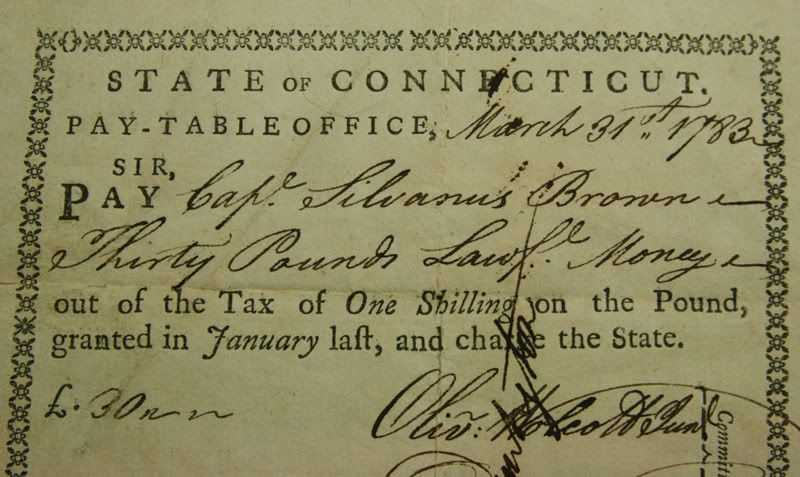 STATE OF CONNECTICUT.
PAY-TABLE OFFICE, March 31st. 1783
SIR,
PAY Capt. Silvanus Brown
Thirty Pounds Lawfl. Money
out of the Tax of One Shilling on the Pound,
granted in January laſt, and charge the State.
£. 30
Olivr. Wolcott Junr
Committ